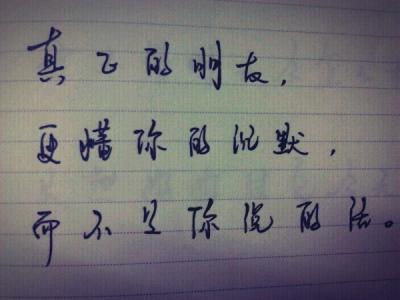 真正的朋友，
更懂你的沉默，
而不是你说的话。